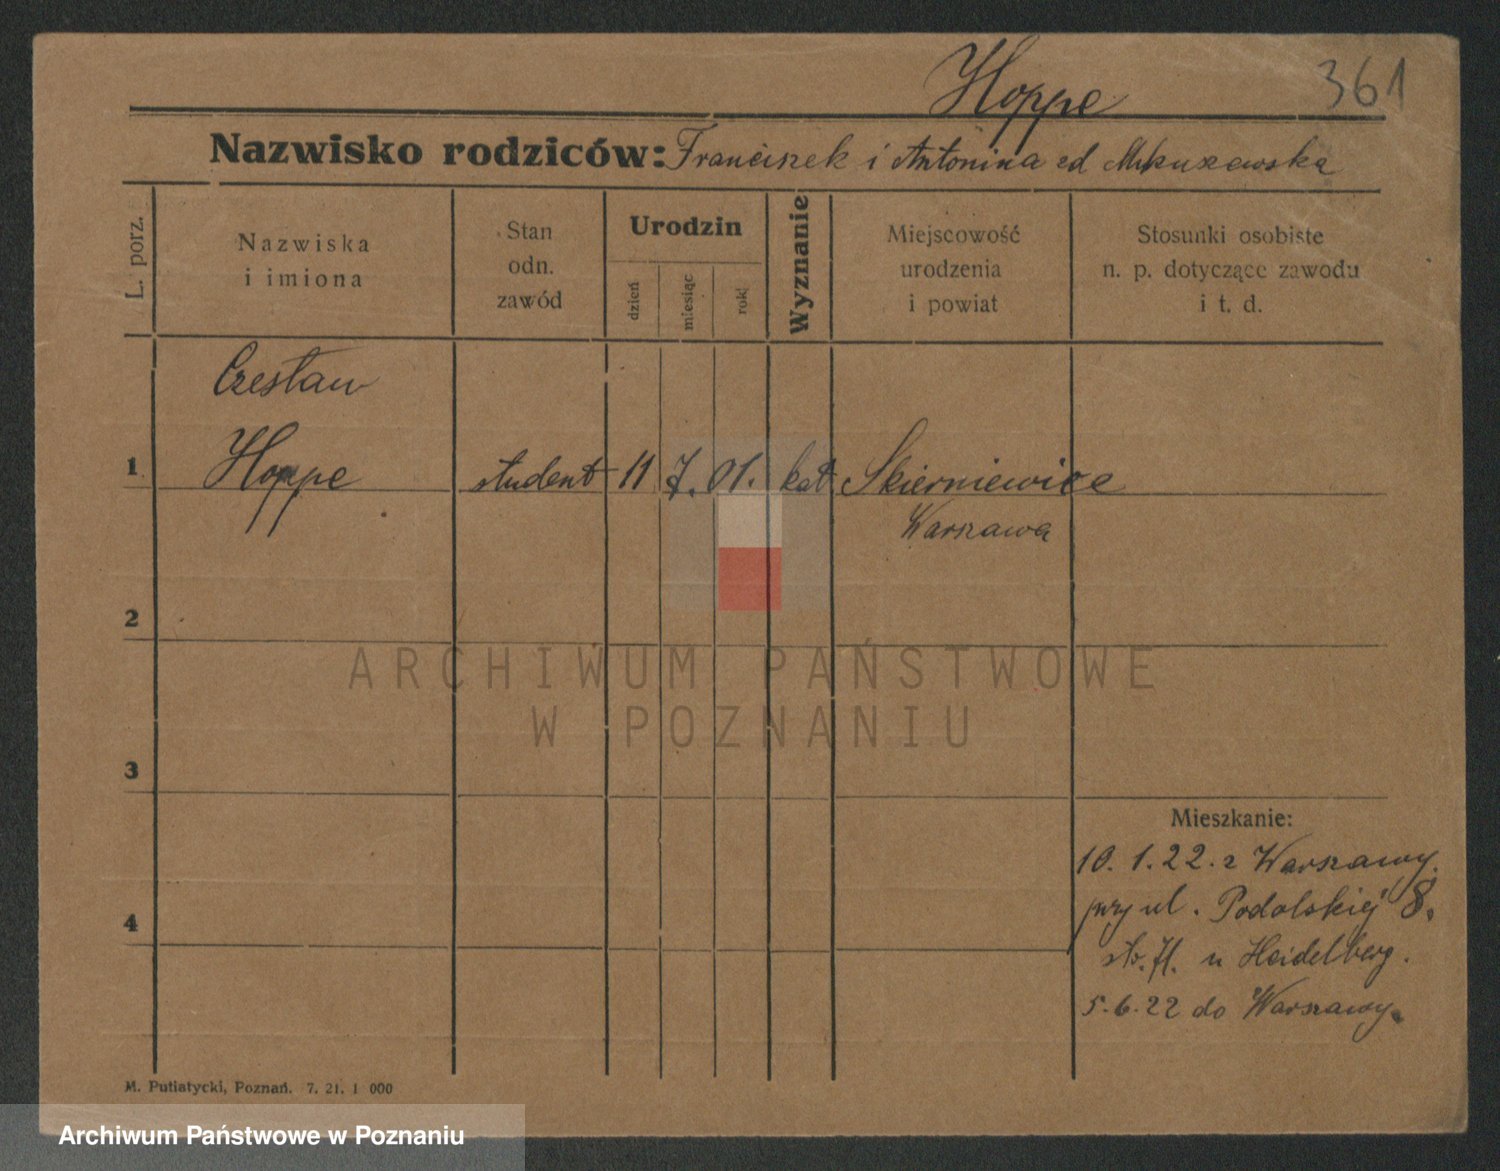 Hoppe
361
Nazwisko rodziców: Franciszek i Antonina zd
L. porz.
Nazwiska
i imiona
Stan
odn.
zawód
Urodzin
dzień
miesiąc
rok
Wyznanie
Miejscowość
urodzenia
i powiat
Stosunki osobiste
n. p. dotyczące zawodu
i t. d.
Czesław
1 Hoppe student 11 7. 01. kat. Skierniewice
Warszawa
2
ARCHIWUM PAŃSTWOWE
W POZNANIU
3
Mieszkanie:
10. 1. 22. z Warszawy.
przy ul. Podolskiej 8.
u Heidelberg.
4
5. 6. 22 do Warszawy.
M. Putiatycki, Poznań. 7. 21. 1 000
Archiwum Państwowe w Poznaniu